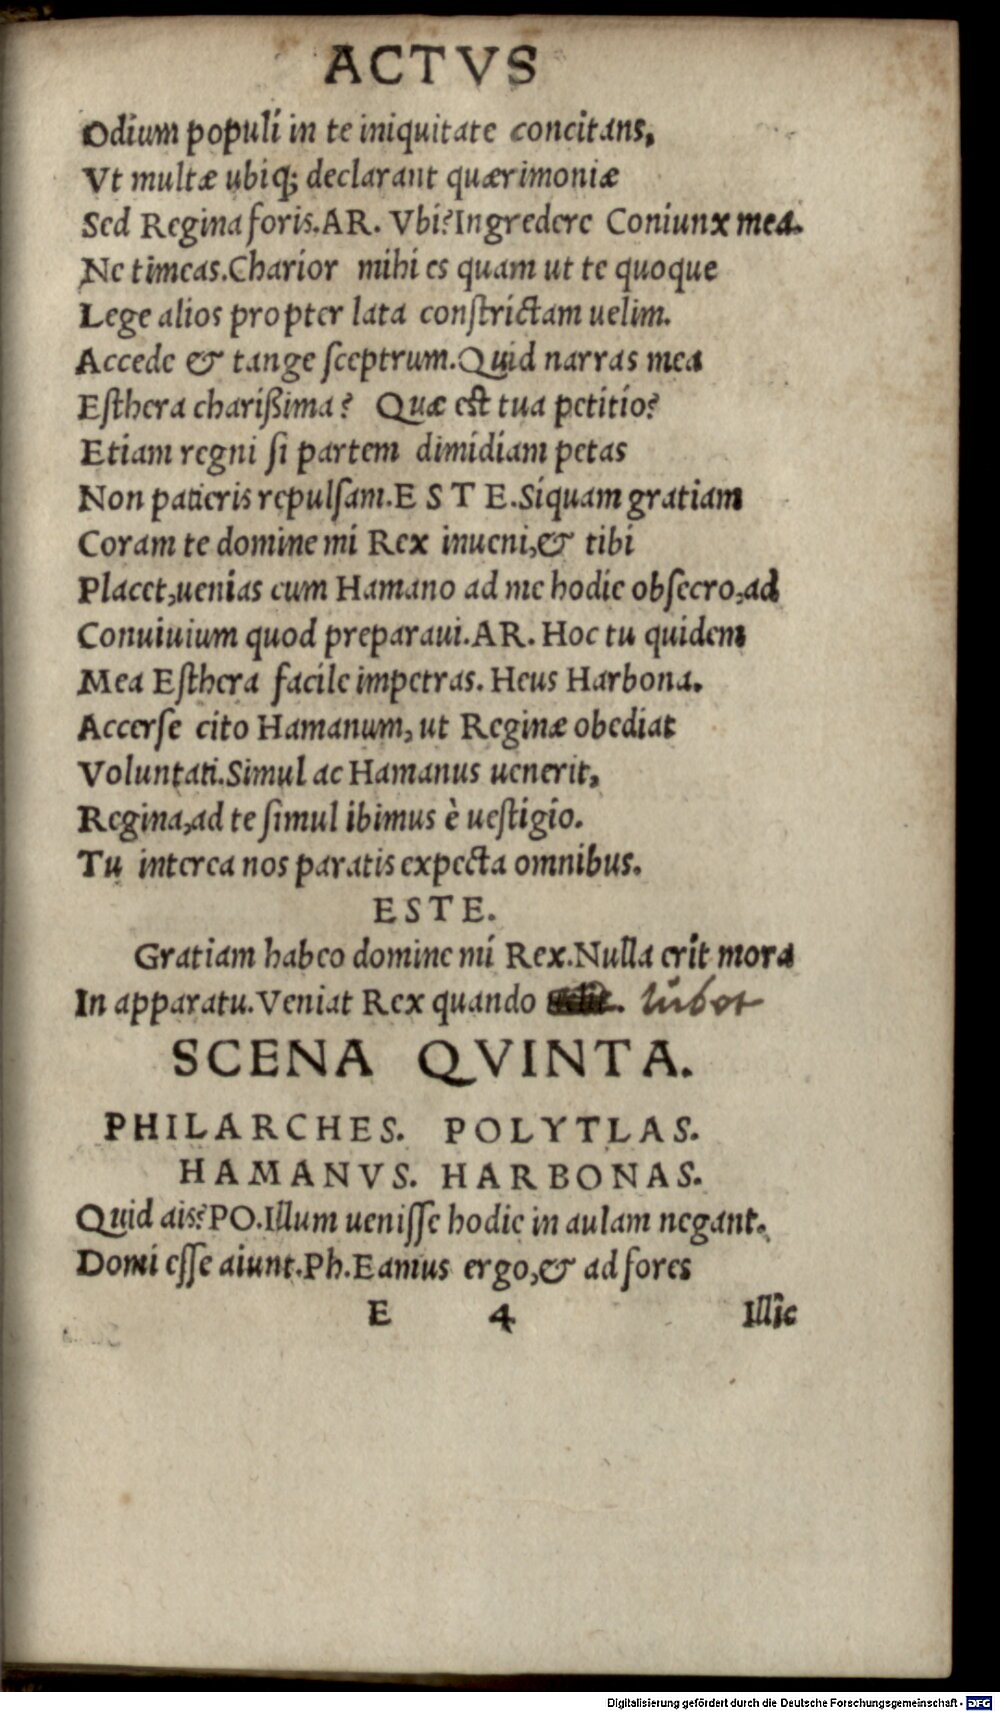 ACTVS
Odium populi in te iniquitate concitans,
Vt multæ ubiq; declarant quærimoniæ
Sed Regina foris.AR. Vbi?Ingredere Coniunx mea.
Ne timeas.Charior mihi es quam ut te quoque
Lege alios propter lata conſtrictam uelim.
Accede & tange ſceptrum.Quid narras mea
Eſthera chariſſima? Quæ est tua petitio?
Etiam regni ſi partem dimidiam petas
Non patieris repulſam.E S T E.Siquam gratiam
Coram te domine mi Rex inueni,& tibi
Placet,uenias cum Hamano ad me hodie obſecro,ad
Conuiuium quod preparaui.AR. Hoc tu quidem
Mea Eſthera facile impetras. Heus Harbona.
Accerſe cito Hamanum, ut Reginæ obediat
Voluntati.Simul ac Hamanus uenerit,
Regina,ad te ſimul ibimus è ueſtigio.
Tu interea nos paratis expecta omnibus.
ESTE.
Gratiam habeo domine mi Rex.Nulla erit mora
In apparatu.Veniat Rex quando lubet
SCENA QVINTA.
PHILARCHES. POLYTLAS.
HAMANVS. HARBONAS.
Quid ais?PO.Illum ueniſſe hodie in aulam negant.
Domi eſſe aiunt.Ph.Eamus ergo,& ad fores
E 4 Illic
Digitalisierung gefördert durch die Deutsche Forschungsgemeinschaft - DFG